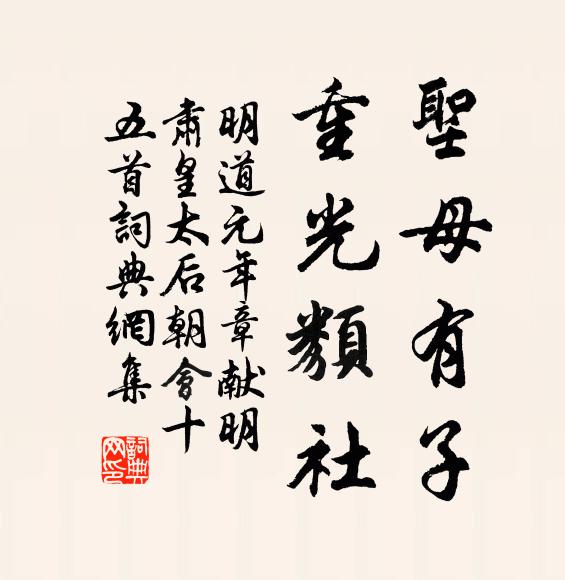 聖母有子
重光類社
明道元年章献明
肅皇太后朝會十
五首詞典網集
詞典
网印